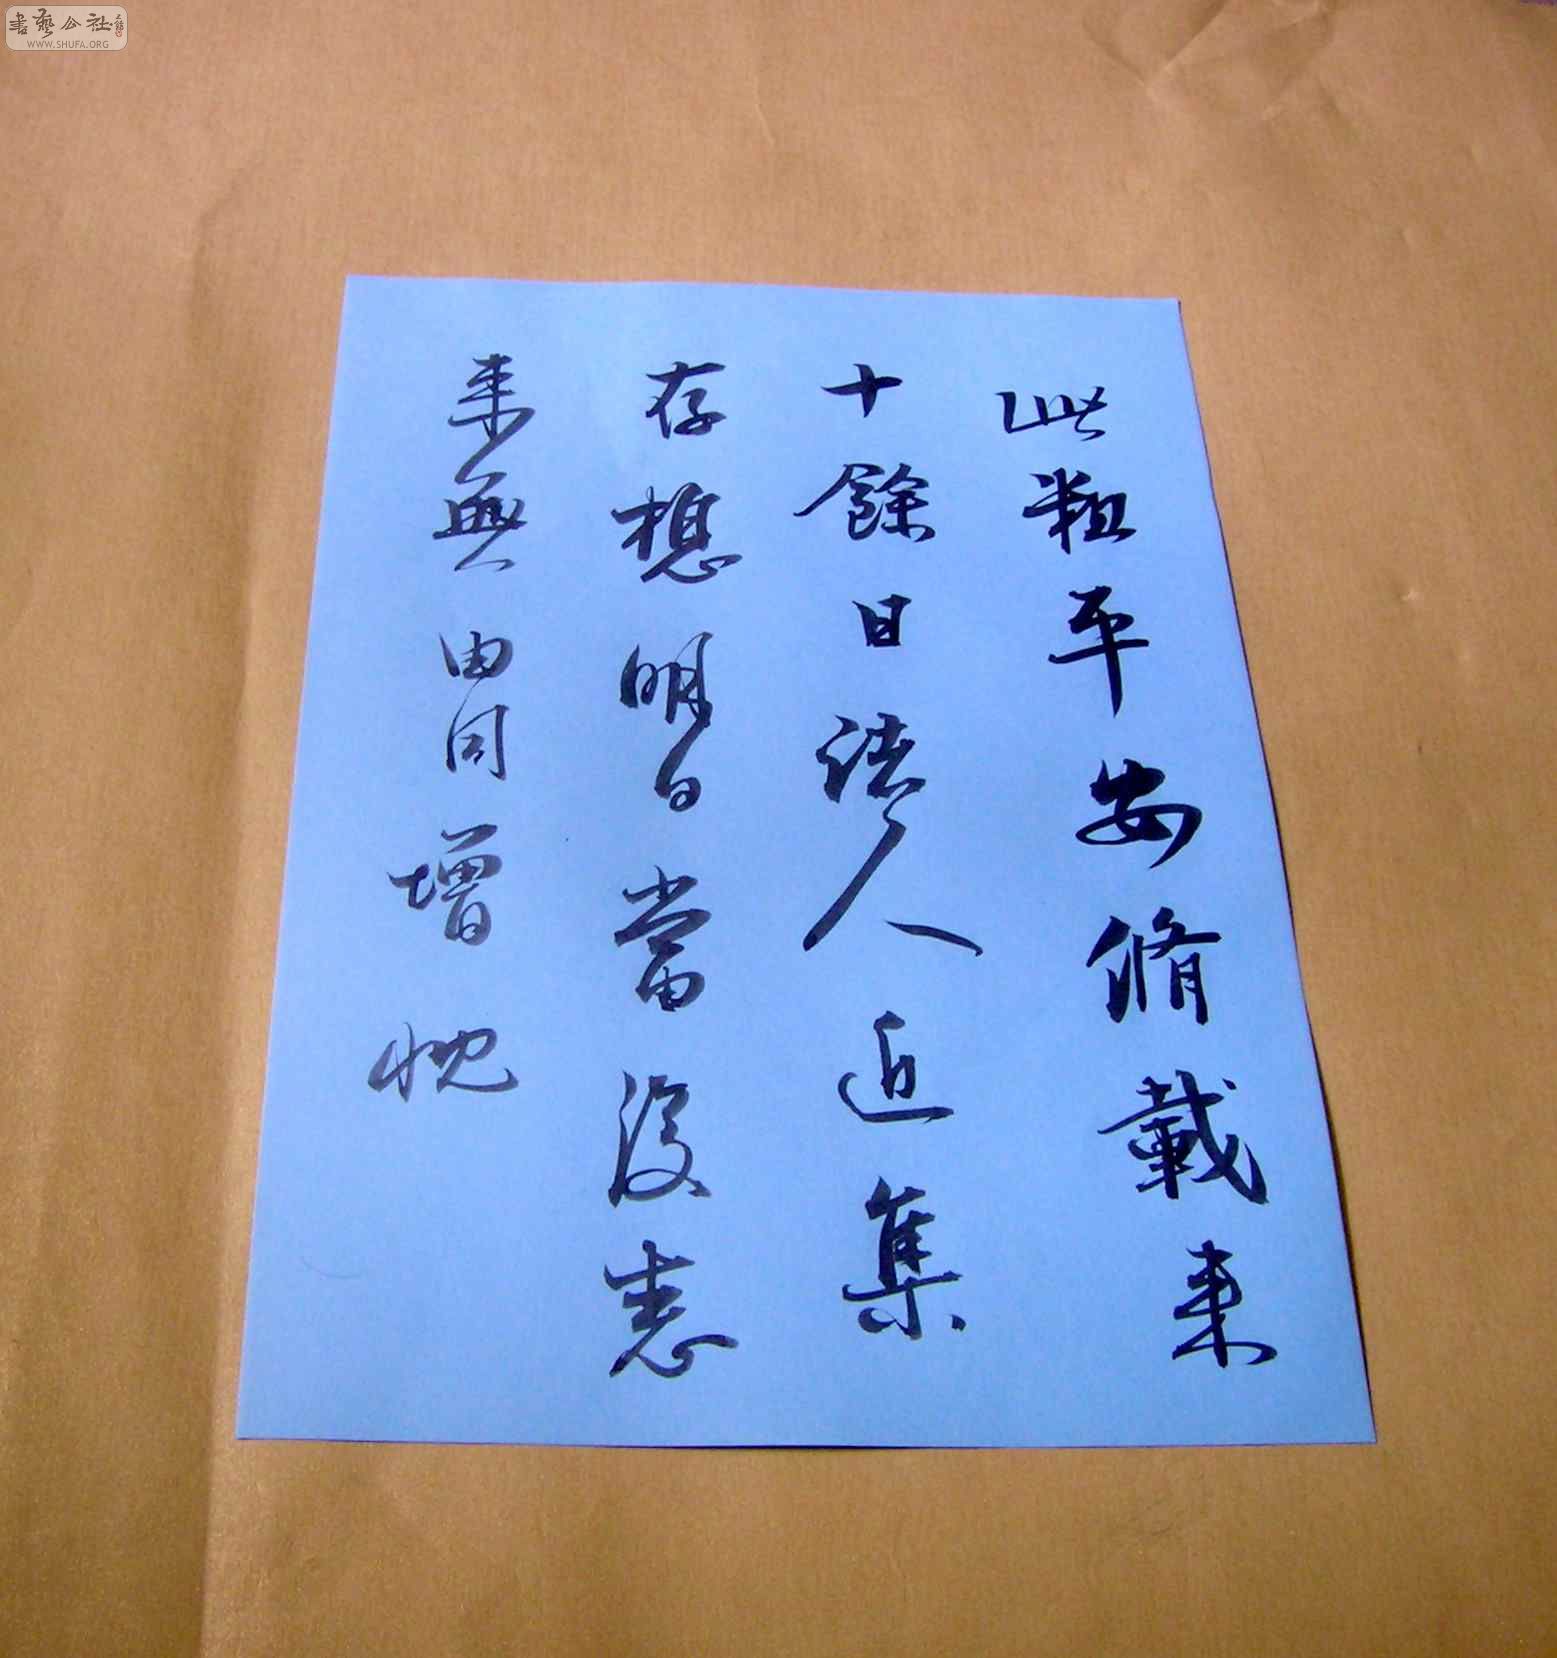 書藝公社
WWW.SHUFA.ORG
此粗平安脩載来
十餘日諸人近集
存想明日當復悉
来無由同增慨